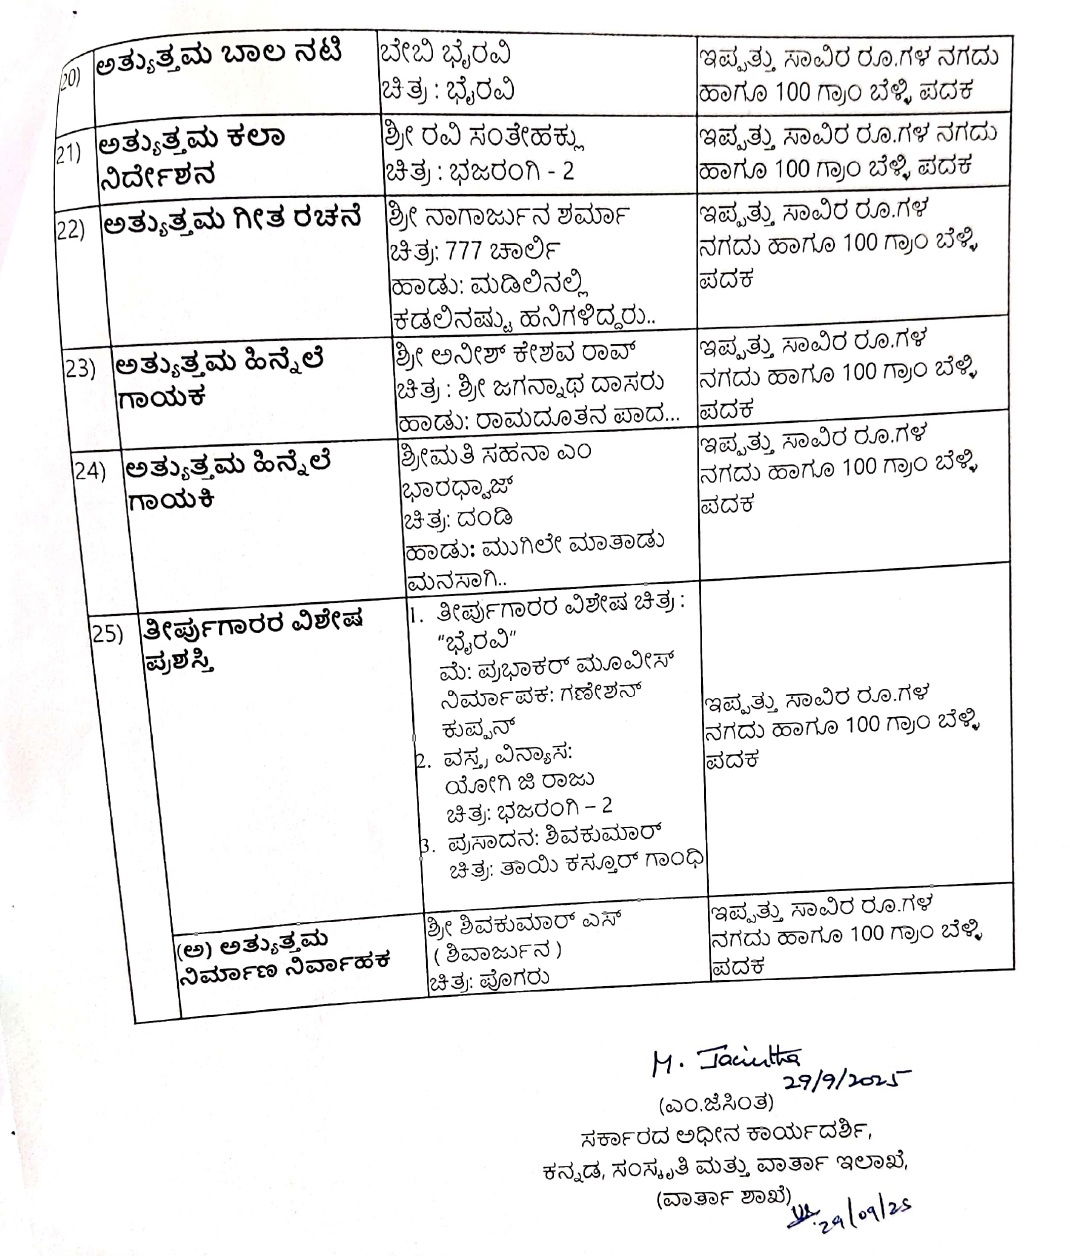 20) ಅತ್ಯುತ್ತಮ ಬಾಲ ನಟಿ
ಬೇಬಿ ಭೈರವಿ
ಚಿತ್ರ : ಭೈರವಿ
ಇಪ್ಪತ್ತು ಸಾವಿರ ರೂ.ಗಳ ನಗದು
ಹಾಗೂ 100 ಗ್ರಾಂ ಬೆಳ್ಳಿ ಪದಕ
21) ಅತ್ಯುತ್ತಮ ಕಲಾ
ನಿರ್ದೇಶನ
ಶ್ರೀ ರವಿ ಸಂತೇಹಕ್ಲು
ಚಿತ್ರ : ಭಜರಂಗಿ - 2
ಇಪ್ಪತ್ತು ಸಾವಿರ ರೂ.ಗಳ ನಗದು
ಹಾಗೂ 100 ಗ್ರಾಂ ಬೆಳ್ಳಿ ಪದಕ
22) ಅತ್ಯುತ್ತಮ ಗೀತ ರಚನೆ
ಶ್ರೀ ನಾಗಾರ್ಜುನ ಶರ್ಮಾ
ಚಿತ್ರ: 777 ಚಾರ್ಲಿ
ಹಾಡು: ಮಡಿಲಿನಲ್ಲಿ
ಕಡಲಿನಷ್ಟು ಹನಿಗಳಿದ್ದರು..
ಇಪ್ಪತ್ತು ಸಾವಿರ ರೂ.ಗಳ
ನಗದು ಹಾಗೂ 100 ಗ್ರಾಂ ಬೆಳ್ಳಿ
ಪದಕ
23) ಅತ್ಯುತ್ತಮ ಹಿನ್ನೆಲೆ
ಗಾಯಕ
ಶ್ರೀ ಅನೀಶ್ ಕೇಶವ ರಾವ್
ಚಿತ್ರ : ಶ್ರೀ ಜಗನ್ನಾಥ ದಾಸರು
ಹಾಡು: ರಾಮದೂತನ ಪಾದ...
ಇಪ್ಪತ್ತು ಸಾವಿರ ರೂ.ಗಳ
ನಗದು ಹಾಗೂ 100 ಗ್ರಾಂ ಬೆಳ್ಳಿ
ಪದಕ
24) ಅತ್ಯುತ್ತಮ ಹಿನ್ನೆಲೆ
ಗಾಯಕಿ
ಶ್ರೀಮತಿ ಸಹನಾ ಎಂ
ಭಾರಧ್ವಾಜ್
ಚಿತ್ರ: ದಂಡಿ
ಹಾಡು: ಮುಗಿಲೇ ಮಾತಾಡು
ಮನಸಾಗಿ..
ಇಪ್ಪತ್ತು ಸಾವಿರ ರೂ.ಗಳ
ನಗದು ಹಾಗೂ 100 ಗ್ರಾಂ ಬೆಳ್ಳಿ
ಪದಕ
25) ತೀರ್ಪುಗಾರರ ವಿಶೇಷ
ಪ್ರಶಸ್ತಿ
1. ತೀರ್ಪುಗಾರರ ವಿಶೇಷ ಚಿತ್ರ :
“ಭೈರವಿ”
ಮೆ: ಪ್ರಭಾಕರ್ ಮೂವೀಸ್
ನಿರ್ಮಾಪಕ: ಗಣೇಶನ್
ಕುಪ್ಪನ್
2. ವಸ್ತ್ರ ವಿನ್ಯಾಸ:
ಯೋಗಿ ಜಿ ರಾಜು
ಚಿತ್ರ: ಭಜರಂಗಿ – 2
3. ಪ್ರಸಾದನ: ಶಿವಕುಮಾರ್
ಚಿತ್ರ: ತಾಯಿ ಕಸ್ತೂರ್ ಗಾಂಧಿ
ಇಪ್ಪತ್ತು ಸಾವಿರ ರೂ.ಗಳ
ನಗದು ಹಾಗೂ 100 ಗ್ರಾಂ ಬೆಳ್ಳಿ
ಪದಕ
(ಅ) ಅತ್ಯುತ್ತಮ
ನಿರ್ಮಾಣ ನಿರ್ವಾಹಕ
ಶ್ರೀ ಶಿವಕುಮಾರ್ ಎಸ್
( ಶಿವಾರ್ಜುನ )
ಚಿತ್ರ: ಪೊಗರು
ಇಪ್ಪತ್ತು ಸಾವಿರ ರೂ.ಗಳ
ನಗದು ಹಾಗೂ 100 ಗ್ರಾಂ ಬೆಳ್ಳಿ
ಪದಕ
M. Jacintha
29/9/2025
(ಎಂ.ಜೆಸಿಂತ)
ಸರ್ಕಾರದ ಅಧೀನ ಕಾರ್ಯದರ್ಶಿ,
ಕನ್ನಡ, ಸಂಸ್ಕೃತಿ ಮತ್ತು ವಾರ್ತಾ ಇಲಾಖೆ,
(ವಾರ್ತಾ ಶಾಖೆ)
29/09/25